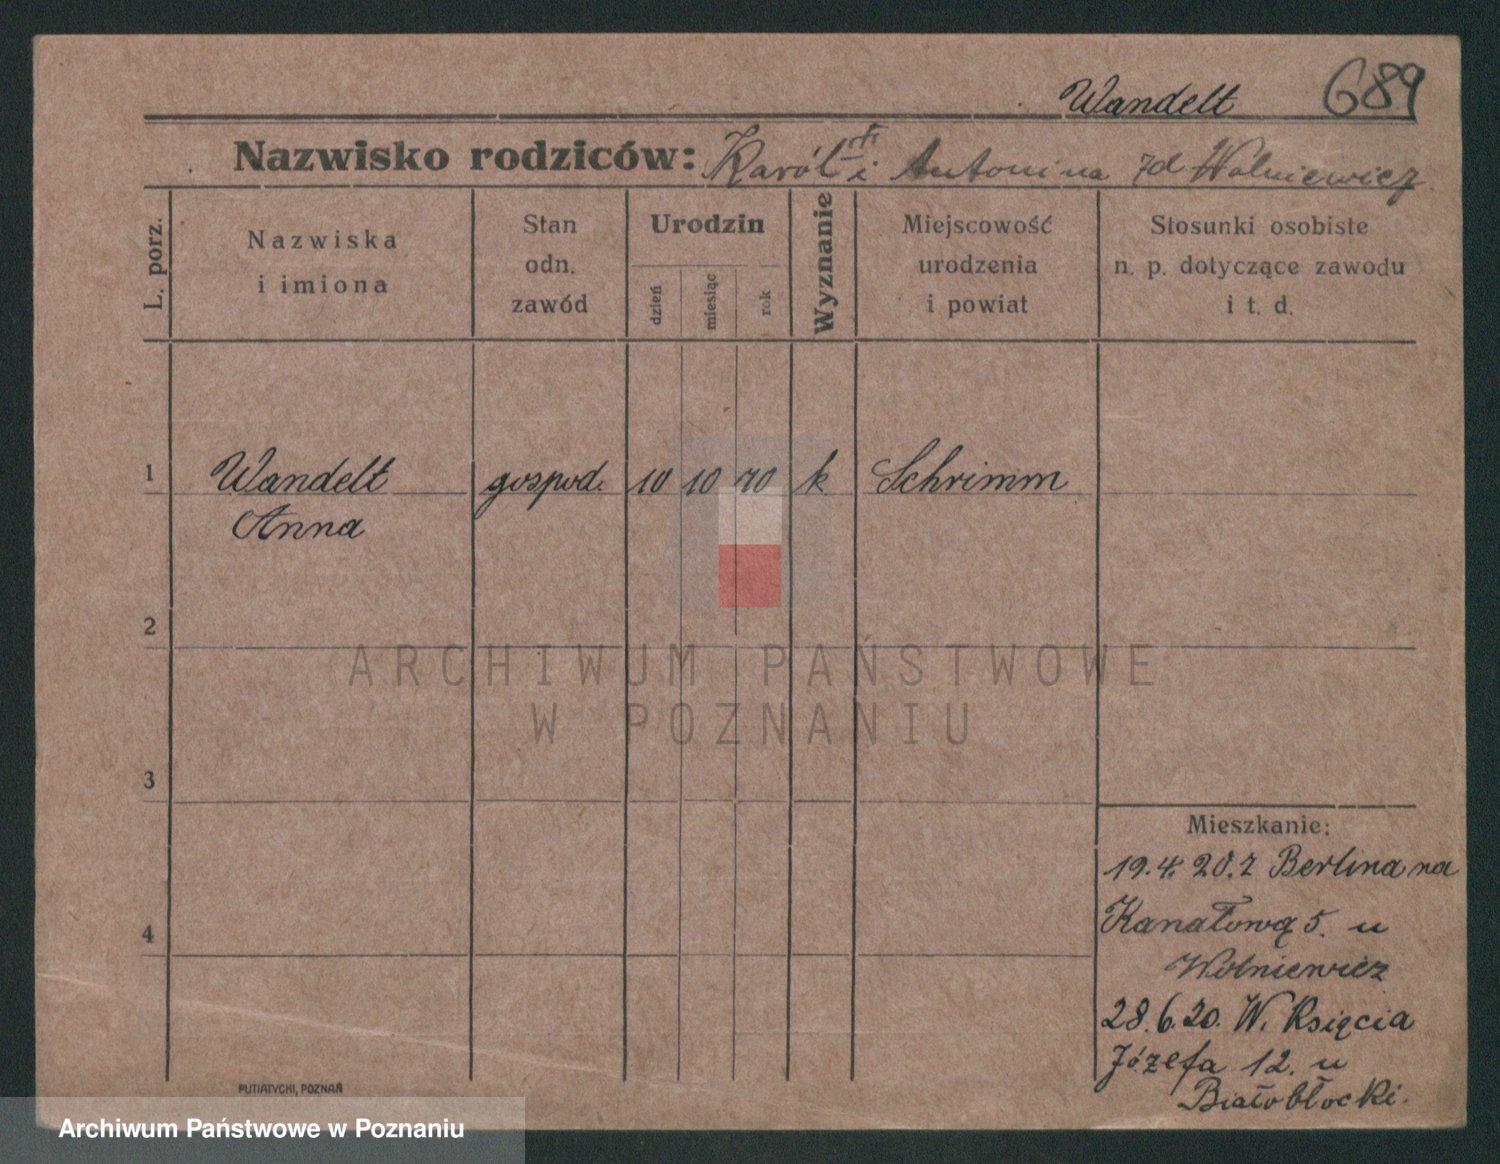 Wandelt 689
Nazwisko rodziców: Karól i Antonina zd Wolniewicz
L. porz.
Nazwiska
i imiona
Stan
odn.
zawód
Urodzin
dzień
miesiąc
rok
Wyznanie
Miejscowość
urodzenia
i powiat
Stosunki osobiste
n. p. dotyczące zawodu
i t. d.
1 Wandelt gospod. 10 10 70 k Schrimm
Anna
2
3
4
Mieszkanie:
19.4. 20. z Berlina na
Kanałową 5. u
Wolniewicz
28.6.20. W. Księcia
Józefa 12. u
Białobłocki.
PUTIATYCKI, POZNAŃ
ARCHIWUM PAŃSTWOWE
W POZNANIU
Archiwum Państwowe w Poznaniu